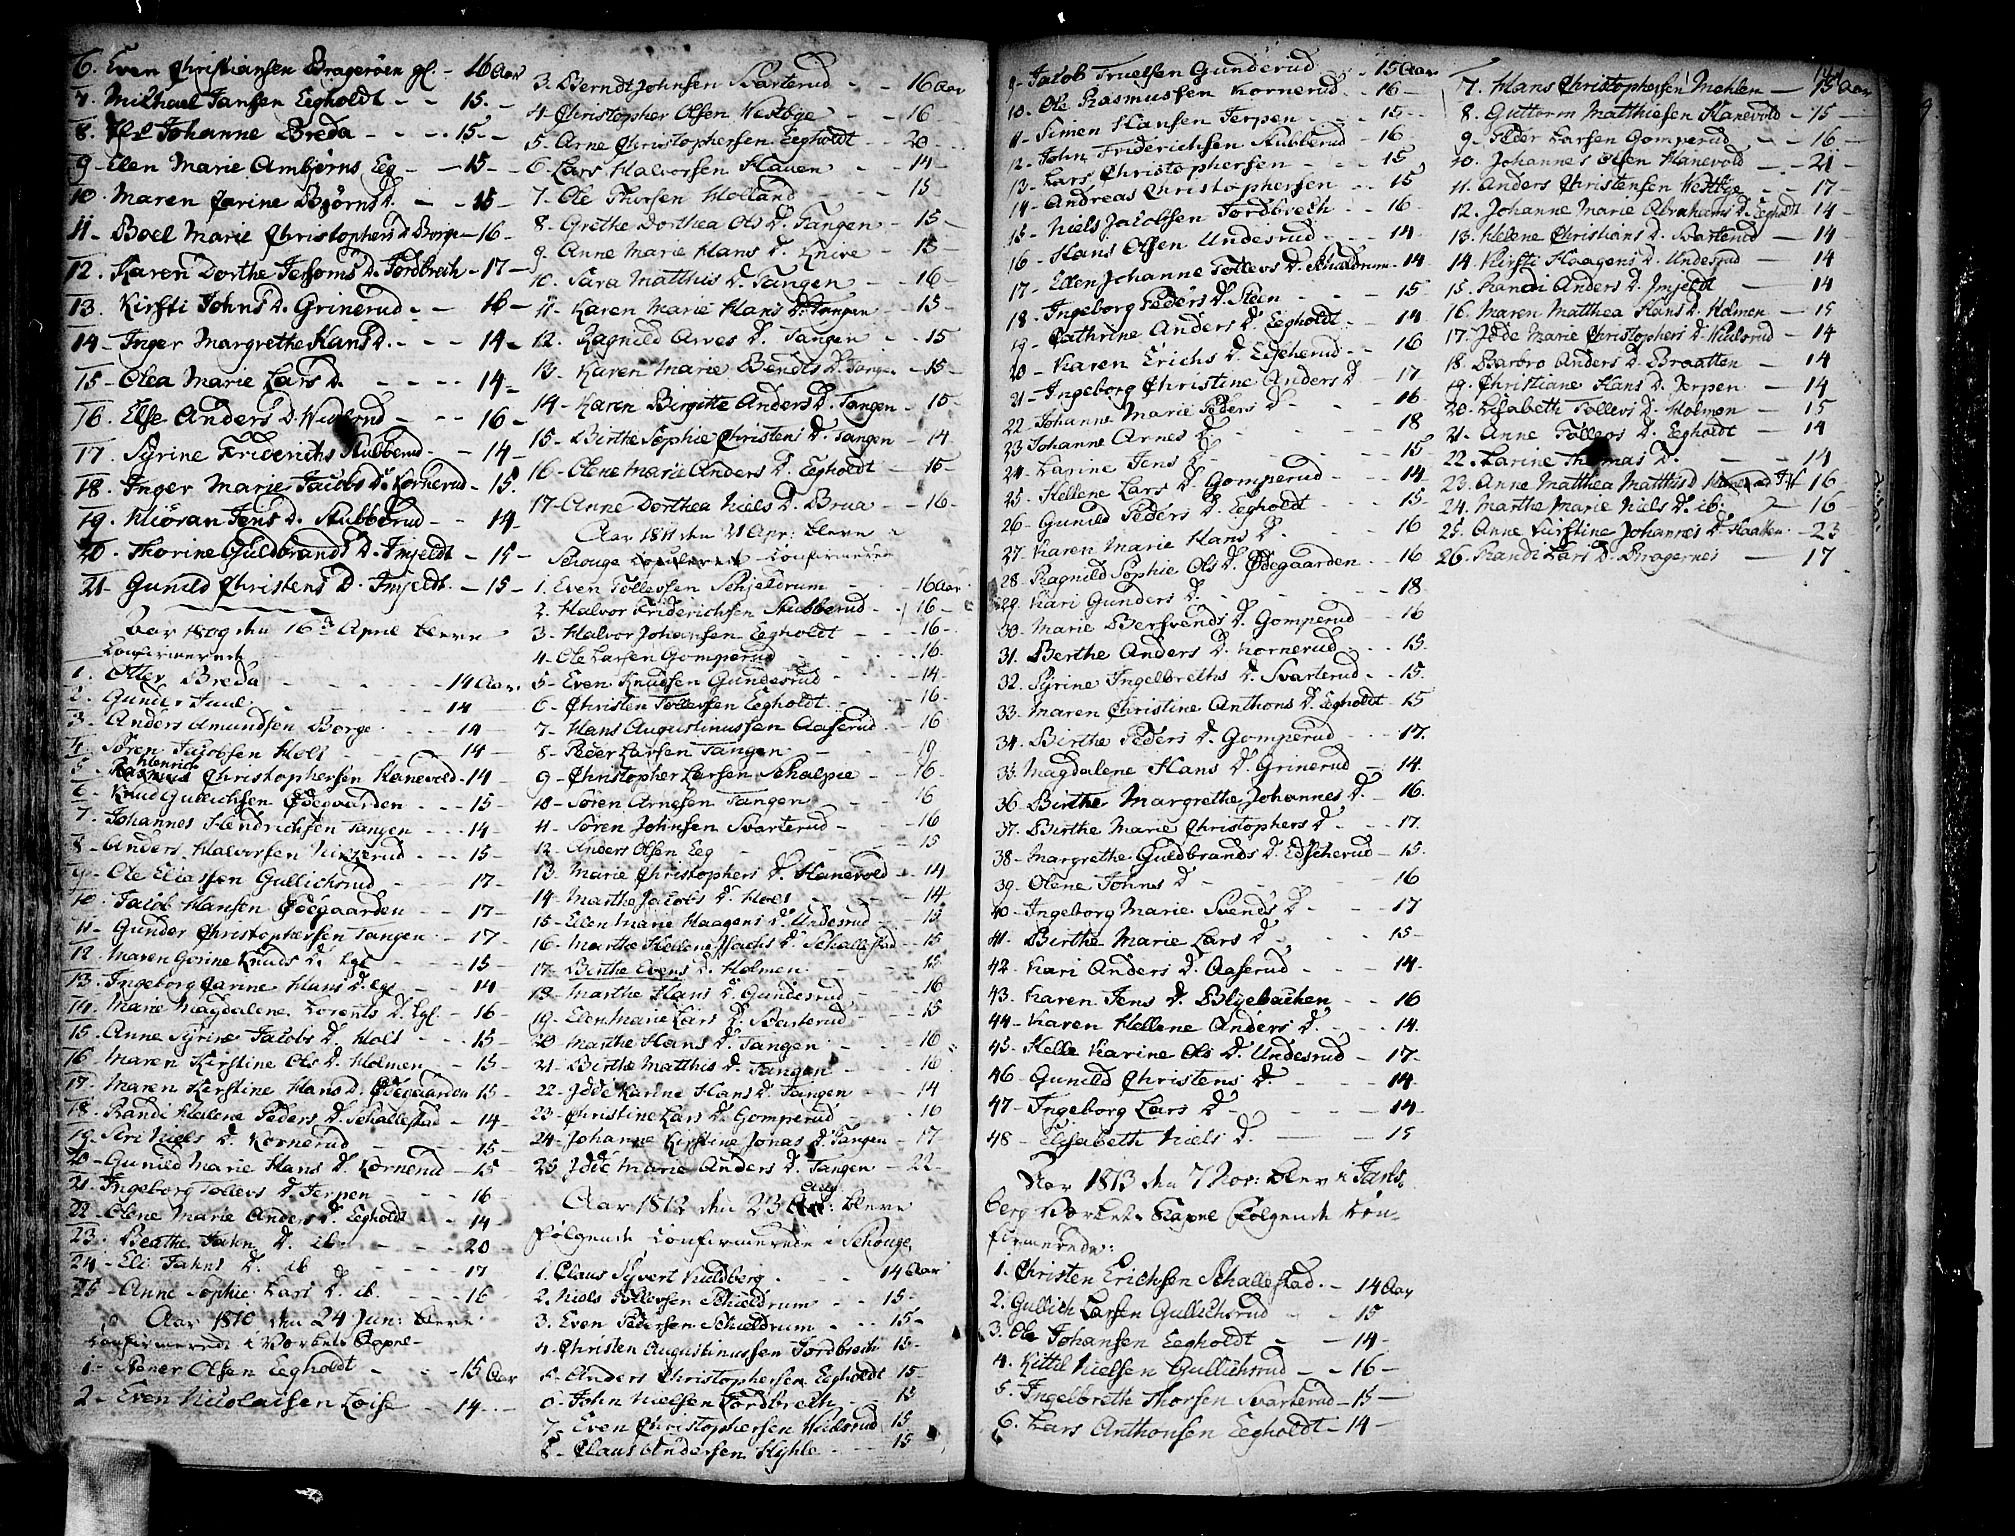 6. Even Christiansen Bragerøen gl. - 16 Aar
7. Michael Jansen Eegholdt - - 15.
8. Johanne Breda - - - 15 -
9 - Elen Marie Ambjørns Eg - - 15 -
10. Maren Carine Bjørns D. - - 15
11 - Boel Marie Christophers D. Borge - 16 -
12. Karen Dorthe Jersoms D. Jordbrech - 17 -
13. Kirsti Johns D. Grinerud - - 16 -
14 - Inger Margrethe Hans D. - - - 14 -
15 - Olea Marie Lars D. - - - - 14 -
16. Else Anders D. Widsrud - - - 16 -
17. Syrine Friderichs Stubberud - - 14 -
18. Inger Marie Jacobs D. Kornerud - 15.
19. Kiöran Jens D. Stubberud - - 14 -
20. Thorine Guldbrands D. Imjeldt - 15 -
21 - Gunild Christens D. Imjeldt. - 15 -
Aar 1809 den 16de April bleve
Confirmerede
1. Otter Breda - - - - 14 Aar.
2. Gunder Juul - - - 14 -
3 - Anders Amundsen Borge - - 14 -
4. Sören Jacobsen Hols - - 14 -
5. Henrich Christophersen Hanevold - 14 -
6 - Knud Gullichsen Ødegaarden - - - 15 -
7. Johannes Hendrichsen Tangen - - 14 -
8 - Anders Halvorsen Vikserud - - - 15 -
9. Ole Eliassen Gullichsrud - - - 17 -
10. Jacob Hansen Ødegaarden - - 17 -
11 - Gunder Christophersen Tangen - - 17 -
12. Maren Gorine Knuds D. Egl - - 15 -
13. Ingeborg Carine Hans D. Eg - - 14 -
14. Marie Magdalene Lorents D. Egl - 16 -
15. Anne Syrine Jacobs D. Hols - - 15 -
16. Maren Kirstine Ols D. Holmen - - 15 -
17. Maren Kirstine Hans D. Ødegaarden 15 -
18. Randi Helene Peders D. Schallestad - 14 -
19. Siri Niels D. Kornerud - - 15 -
20 - Gunild Marie Hans D. Kornerud - 15
21. Ingeborg Tollevs D. Jerpen - - - 16 -
22 - Olene Marie Anders D. Eegholdt - - 14 -
23. Beathe Jahn D. ib. - - - 20
24 - Eli Jahns D. ib - - - 17
25 - Anne Sophie Lars D. ib. - - - 16
Aar 1810 den 24 Jun: bleve
Confirmerede i Vorkets Capel -
1 - Stener Olsen Eegholdt - - - 15 Aar
2 - Even Nicolaisen Loise - 14 -
3. Berndt Johnsen Svarterud - - 16 Aar
4 - Christopher Olsen Westbye - - 16 -
5 - Arne Christophersen Eegholdt - - 20 -
6 - Lars Halvorsen Hauen - - 14 -
7. Ole Thorsen Holland - - 15
8 - Grethe Dorthea Ols D. Tangen - 15 -
9. Anne Marie Hans D. Knive - - 15
10. Sara Matthis D. Tangen - - 16 -
11 - Karen Marie Hans D. Tangen - 15 -
12. Ragnild Arves D. Tangen - - 15
13 - Karen Marie Bendts D. Tangen - 15 -
14 - Karen Birgitte Anders D. Tangen - 15 -
15 - Birthe Sophie Christens D. Tangen - 14.
16 - Olene Marie Anders D. Eegholdt - 15 -
17 - Anne Dorthea Niels D. Brua - - 16 -
Aar 1811 den 21 Apr: bleve
Schouge Confirmerede
1. Even Tollevsen Schjeldrum - - 16 Aar
2. Halvor Friderichsen Stubberud - - 16 -
3 - Halvor Johansen Eegholdt - - - 16 -
4 - Ole Larsen Gomperud - - 16.
5 - Even Knudsen Gundesrud - - - 14 -
6 - Christen Tollevsen Eegholdt - - 16 -
7 - Hans Augustinussen Aaserud - - 16
8 - Peder Larsen Tangen - - - 19
9 - Christopher Larsen Schalpie - - 16 -
10 - Sören Arnesen Tangen - - 16
11 - Sören Johnsen Svarterud - - - 16
12 - Anders Olsen Eeg - - - 15
13. Marie Christophers D. Hanevold - 14
14 - Marthe Jacobs D. Hols - - 14
15 - Ellen Marie Haagens D. Undesrud - - 15
16 - Marthe Hellene Isachs D. Schallestad - 15
17 - Birthe Evens D. Holmen - - 15
18 - Marthe Hans D. Gundesrud - - 16
19. Elen Marie Lars D. Svarterud - - 15
20 - Marthe Hans D. Tangen - - 16
21 - Birthe Matthis D. Tangen - - 16
22 - Jdde Karine Hans D. Tangen - - 14
23 - Christine Lars D. Gomperud - - 16
24 - Johanne Kirstine Jonas D. Tangen - 17
25 - Jdde Marie Anders D. Tangen - 22 -
Aar 1812 den 23 Aug: bleve
Følgende Confirmerede i Schouge
1. Claus Syvert Kuldberg - - - 14 Aar
2. Niels Tollevsen Schieldrum - - 15 -
3. Even Pedersen Schieldrum - - 15 -
4 - Christen Augustinussen Jordbrech 15 -
5 - Anders Christophersen Eegholdt 15 -
6 - John Nielsen Jordbrech - - 15
7 - Even Christophersen Widsrud 15
8 - Claus Andersen Hyhle - - - 15
9 - Jacob Truelsen Gunderud - - 15 Aar
10 - Ole Rasmussen Kornerud - - 16 -
11 - Simen Hansen Jerpen - - - 15 -
12 - John Friderichsen Stubberud - 16
13 - Lars Christophersen - - - 15
14 - Andreas Christophersen - - 15
15 - Niels Jacobsen Jordbrech - - 16 -
16 - Hans Olsen Undesrud - - - 14 -
17 - Ellen Johanne Tollevs D. Schieldrum - 14 -
18 - Ingeborg Peders D. Steen - - - 15
19 - Cathrine Anders D. Eegholdt - - 14
20 - Karen Erichs D. Edscherud - - 16
21 - Ingeborg Christine Anders D. - 17
22 - Johanne Marie Peders D. - - 16
23 Johanne Arnes D. - - - 18
24 - Karine Jens D. - - - 15
25. Hellene Lars D. Gomperud - - - 14 -
26 - Gunild Peders D. Eegholdt - - 15
27 - Karen Marie Hans D. - - 16
28 - Ragnild Sophie Ols D. Ødegaarden - - 16
29. Kari Gunders D. - - - 18
30. Marie Bersvends D. Gomperud - 16
31. Berthe Anders D. Kornerud - - 15.
32. Syrine Ingelbreths D. Svarterud - - 15.
33. Maren Christine Anthons D. Eegholdt - 15
34 - Birthe Peders D. Gomperud - - - 17.
35 - Magdalene Hans D. Grinerud - - 14.
36 - Birthe Margrethe Johannes D. - 16.
37. Birthe Marie Christophers D. - - 17.
38 - Margrethe Guldbrands D. Edscherud - 15.
39. Olene Johns D. - - - 16
40 - Ingeborg Marie Svends D. - - 17
41 - Birthe Marie Lars D. - - 15 -
42 - Kari Anders D. Aaserud - - - 14.
43 - Karen Jens D. Blyebachen - - 16
44 - Karen Hellene Anders D. - - 14.
45 - Helle Karine Ols D. Undesrud - 17 -
46 - Gunild Christens D. - - - 14
47 - Ingeborg Lars D. - - - 14 -
48 - Elisabeth Niels D. - - - 15
Aar 1813 den 7 Nov: blev i Jarls-
berg Vorkets Capel Følgende Con-
firmerede:
1. Christen Erichsen Schallestad. - 14 Aar
2. Gullich Larsen Gullichsrud - 15
3. Ole Johansen Eegholdt - - 14 -
4. Kittil Nielsen Gullichsrud - - 16 -
5. Ingelbreth Thorsen Svarterud - 15 -
6. Lars Anthonsen Eegholdt - 14 -
7. Hans Christophersen Mehlen - 15 Aar
8. Guttorm Matthiesen Hanevold - 15 -
9 - Peder Larsen Gomperud - - 16 -
10. Johannes Olsen Hanevold - 21 -
11. Anders Christensen Westbye - - 17 -
12. Johanne Marie Abrahams D. Eegholdt - 14 -
13. Helene Christians D. Svarterud - 14
14. Kirsti Haagens D. Undesrud - 14
15. Randi Anders D. Imjeldt - 14
16. Maren Matthea Hans D. Holmen - 15
17. Jdde Marie Christophers D. Widsrud - 14
18. Barbro Anders D. Braatten - 14
19. Christiane Hans D. Jerpen - 14
20. Lisabeth Tollevs D. Holmen - 15
21. Anne Tollevs D. Eegholdt - 14
22. Karine Thomas D. - - 14
23. Anne Matthea Matthis D. 16
24. Marthe Marie Niels D. ib. - 16
25. Anne Kirstine Johannes D. Haatten - 23
26. Randi Lars D. Bragernes - 17